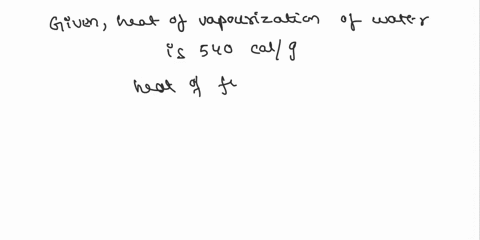 Given, heat of vapourization of water
is 540 cal/g
heat of fe